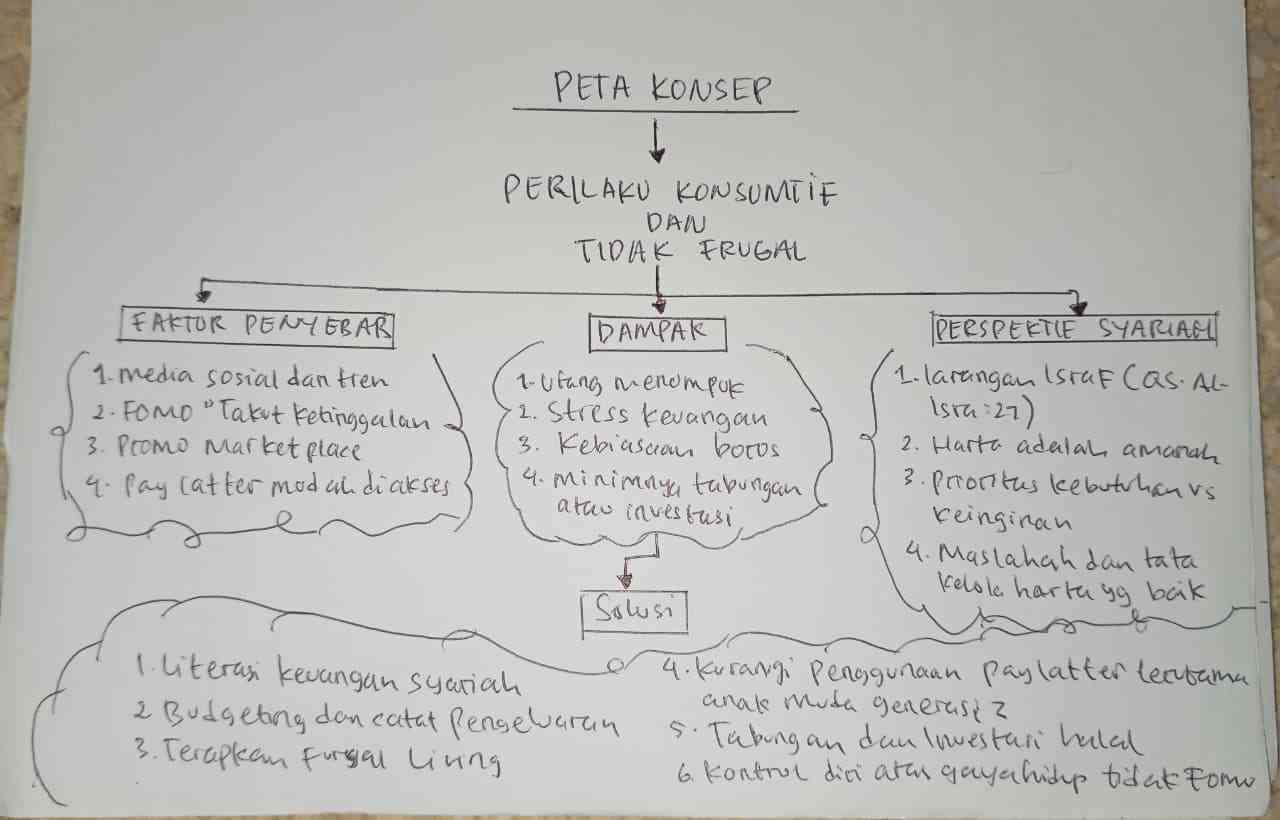 PETA KONSEP
PERILAKU KONSUMTIF
DAN
TIDAK FRUGAL
FAKTOR PENYEBAR
1. media sosial dan tren
2. FOMO "Takut Ketinggalan
3. Promo Market place
4. Pay Latter mudah diakses
DAMPAK
1. Utang menumpuk
2. Stress keuangan
3. Kebiasaan boros
4. Minimnya tabungan
atau investasi
PERSPEKTIF SYARIAH
1. larangan Israf (QS. AL-
Isra: 27)
2. Harta adalah amanah
3. Prioritas kebutuhan vs
keinginan
4. Maslahah dan tata
kelola harta yg baik
Solusi
1. Literasi keuangan syariah
2 Budgeting dan catat Pengeluaran
3. Terapkan Furgal Living
4. Kurangi Penggunaan paylatter terutama
anak muda generasi z
5. Tabungan dan Investasi halal
6. Kontrol diri atas gaya hidup tidak Fomo